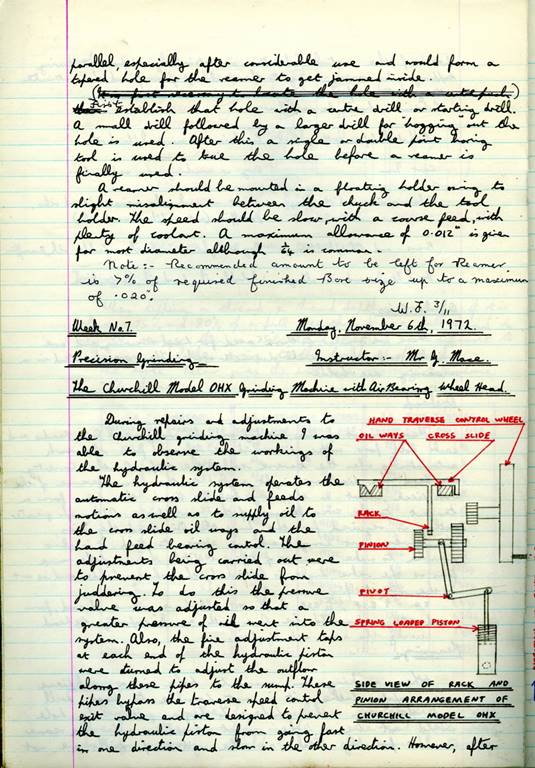 parallel, especially after considerable use and would form a
tapered hole for the reamer to get jammed inside.
(It is first necessary to locate the hole with a centrepunch)
then First establish that hole with a centre drill or starting drill.
A small drill followed by a larger drill for "hogging" out the
hole is used. After this a single or double point boring
tool is used to true the hole before a reamer is
finally used.
A reamer should be mounted in a floating holder owing to
slight misalignment between the chuck and the tool
holder. The speed should be slow, with a course feed, with
plenty of coolant. A maximum allowance of 0.012" is given
for most diameter although 1/64 is common.
Note:- Recommended amount to be left for Reamer
is 7% of required finished Bore size up to a maximum
of .020".
3/11
Week No 7. Monday, November 6th, 1972.
Precision Grinding Instructor:- Mr G. Mace.
The Churchill Model OHX Grinding Machine with Air Bearing Wheel Head.
During repairs and adjustments to
the Churchill grinding machine I was
able to observe the workings of
the hydraulic system.
The hydraulic system operates the
automatic cross slide and feeds
motions as well as to supply oil to
the cross slide oil ways and the
hand feed bearing control. The
adjustments being carried out were
to prevent the cross slide from
juddering. To do this the pressure
valve was adjusted so that a
greater pressure of oil went into the
system. Also, the fine adjustment taps
at each end of the hydraulic piston
were turned to adjust the outflow
along these pipes to the sump. These
pipes bypass the traverse speed control
exit valve and are designed to prevent
the hydraulic piston from going fast
in one direction and slow in the other direction. However, after
HAND TRAVERSE CONTROL WHEEL
OIL WAYS CROSS SLIDE
RACK
PINION
PIVOT
SPRING LOADED PISTON
SIDE VIEW OF RACK AND
PINION ARRANGEMENT OF
CHURCHILL MODEL OHX